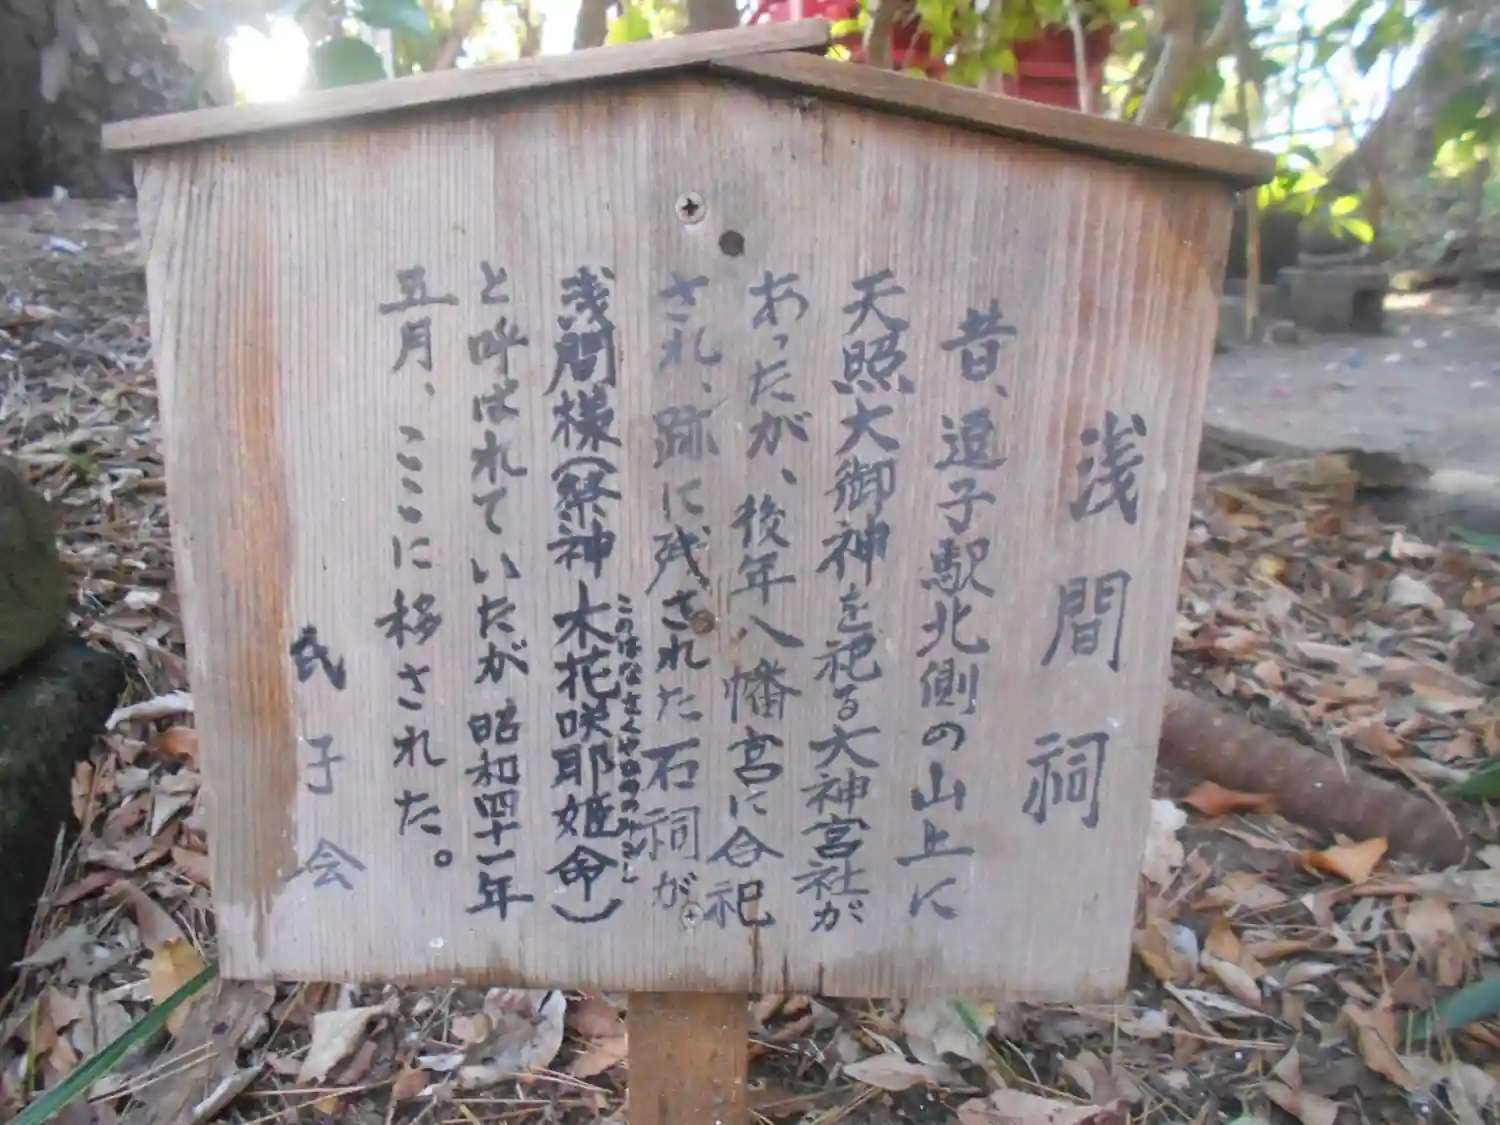 浅間祠
昔、逗子駅北側の山上に
天照大御神を祀る大神宮社が
あったが、後年八幡宮に合祀
され、跡に残された石祠が
浅間様(祭神木花咲耶姫命)
このはなさくやひめのみこと
と呼ばれていたが昭和四十一年
五月、ここに移された。
氏子会